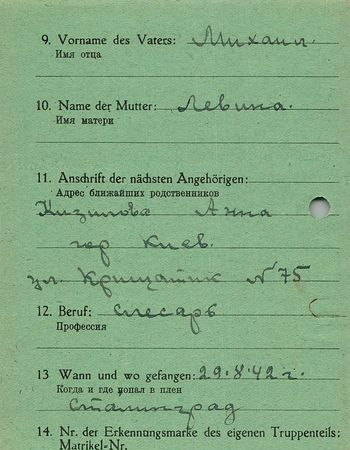 9. Vorname des Vaters: Михаил.
Имя отца
10. Name der Mutter: Левина.
Имя матери
11. Anschrift der nächsten Angehörigen:
Адрес ближайших родственников
Кизилова Анна
гор Киев.
ул. Крищатик N 75
12. Beruf: слесарь
Профессия
13 Wann und wo gefangen: 29.8.42 г.
Когда и где попал в плен
Сталинград
14. Nr. der Erkennungsmarke des eigenen Truppenteils:
Matrikel-Nr.